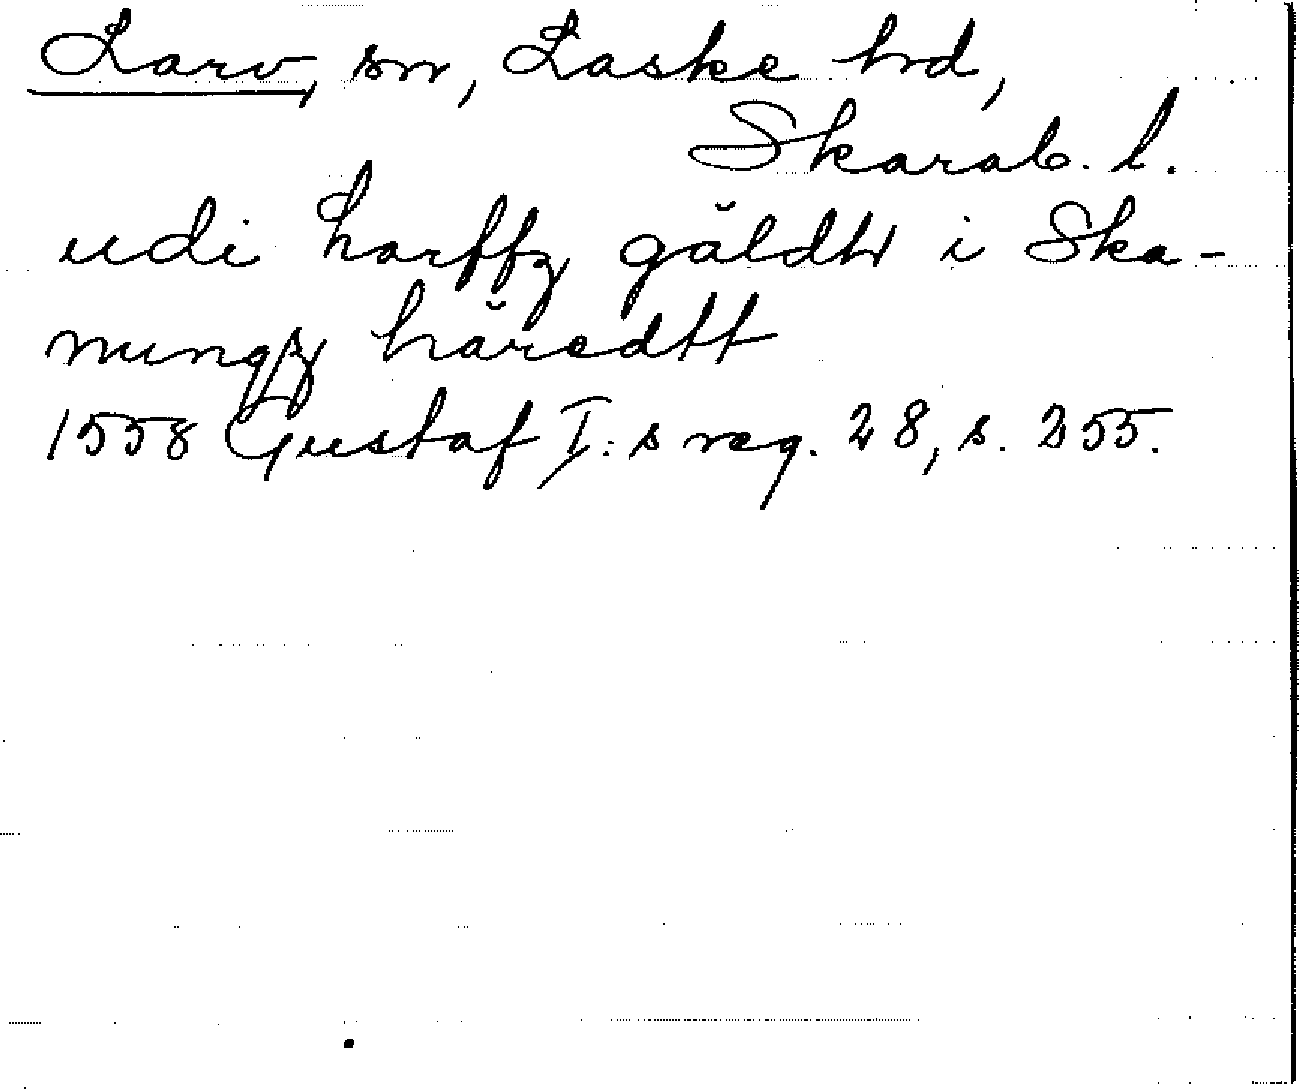 Larv, sn, Laske hd,
Skarab. l.
udi harffz gäldh i Ska-
nungz häredtt
1558 Gustaf I:s reg. 28, s. 255.